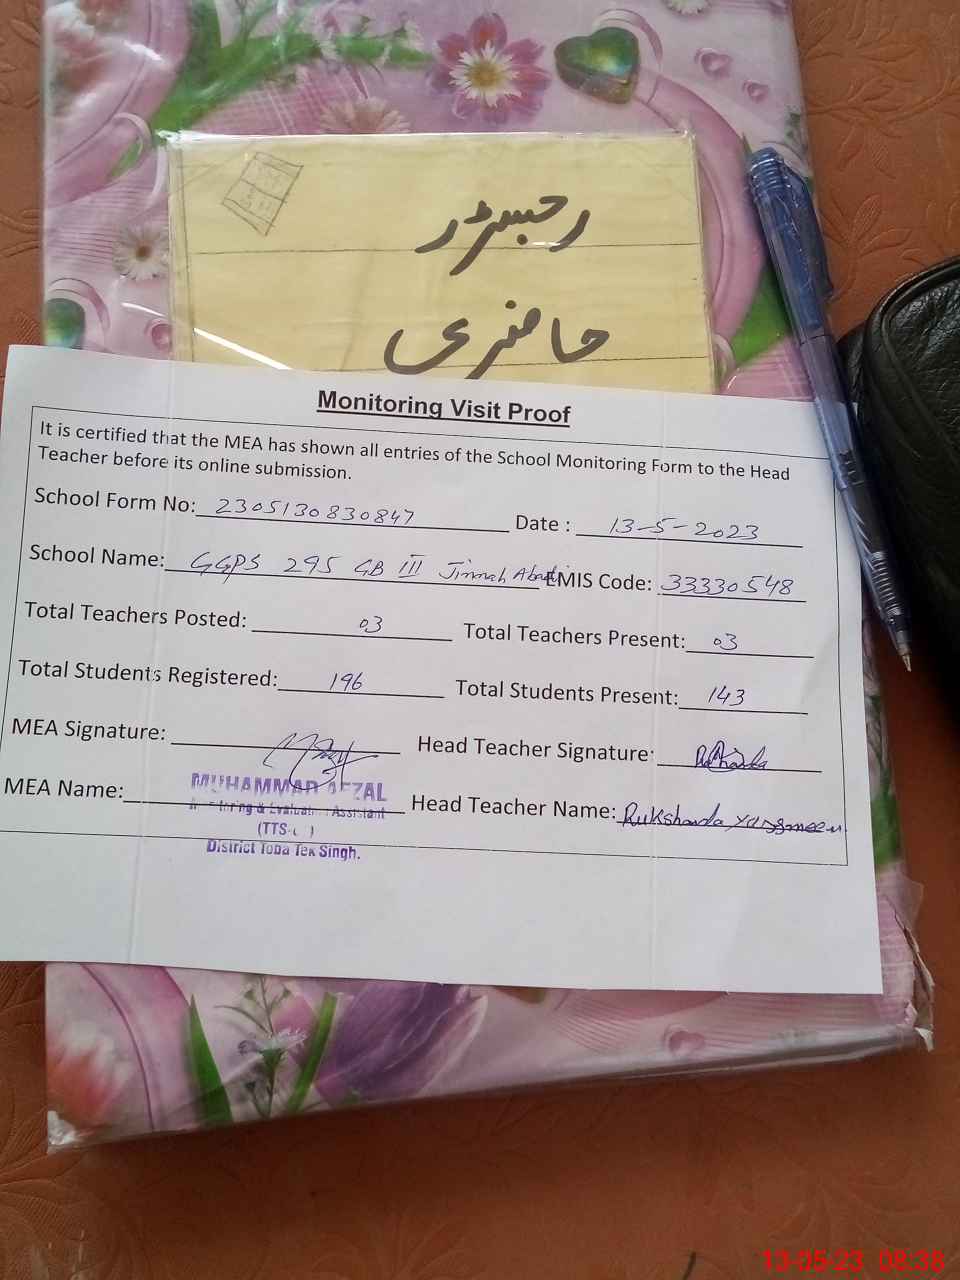 رجسٹر
حاضری
Monitoring Visit Proof
It is certified that the MEA has shown all entries of the School Monitoring Form to the Head
Teacher before its online submission.
School Form No: 2305130830847 Date : 13-5-2023
School Name: GGPS 295 GB III Jinnah Abadi EMIS Code: 33330548
Total Teachers Posted: 03 Total Teachers Present: 03
Total Students Registered: 196 Total Students Present: 143
MEA Signature: Head Teacher Signature:
MUHAMMAD AFZAL
MEA Name: Head Teacher Name: Rukshanda Yasmeen
Monitoring & Evaluation Assistant
District Toba Tek Singh.
13-05-23 08:38